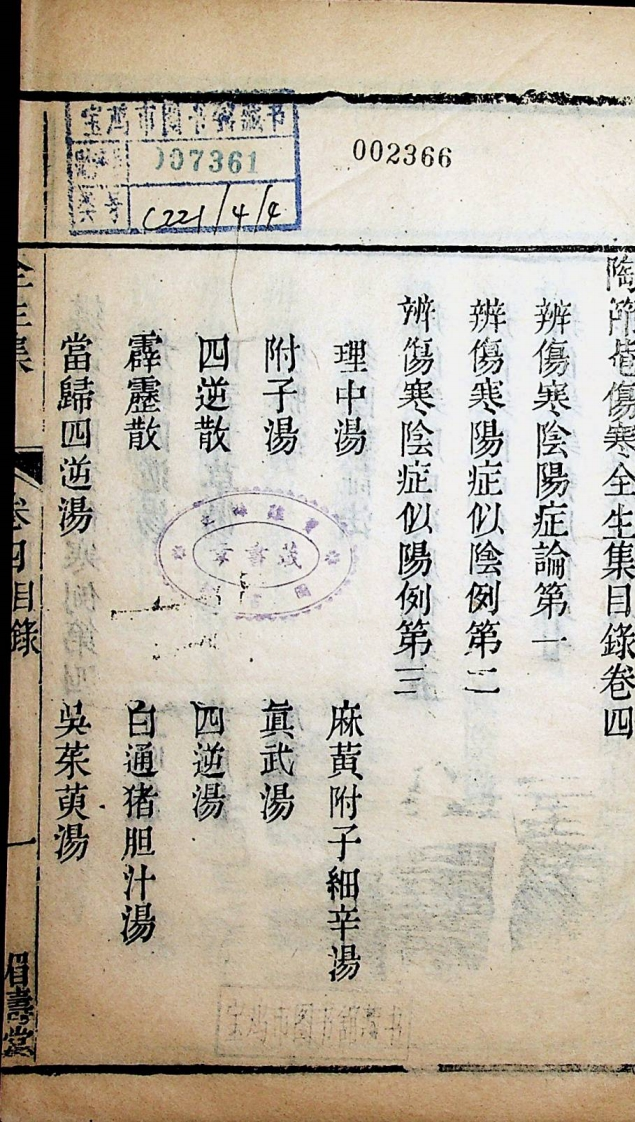 007361
C221/4/4
002366
陶節菴傷寒全生集目錄卷四
辨傷寒陰陽症論第一
辨傷寒陽症似陰例第二
辨傷寒陰症似陽例第三
理中湯
麻黃附子細辛湯
附子湯
眞武湯
四逆散
四逆湯
霹靂散
白通猪胆汁湯
當歸四逆湯
吳茱萸湯
全生集
卷四目錄
一
眉壽堂